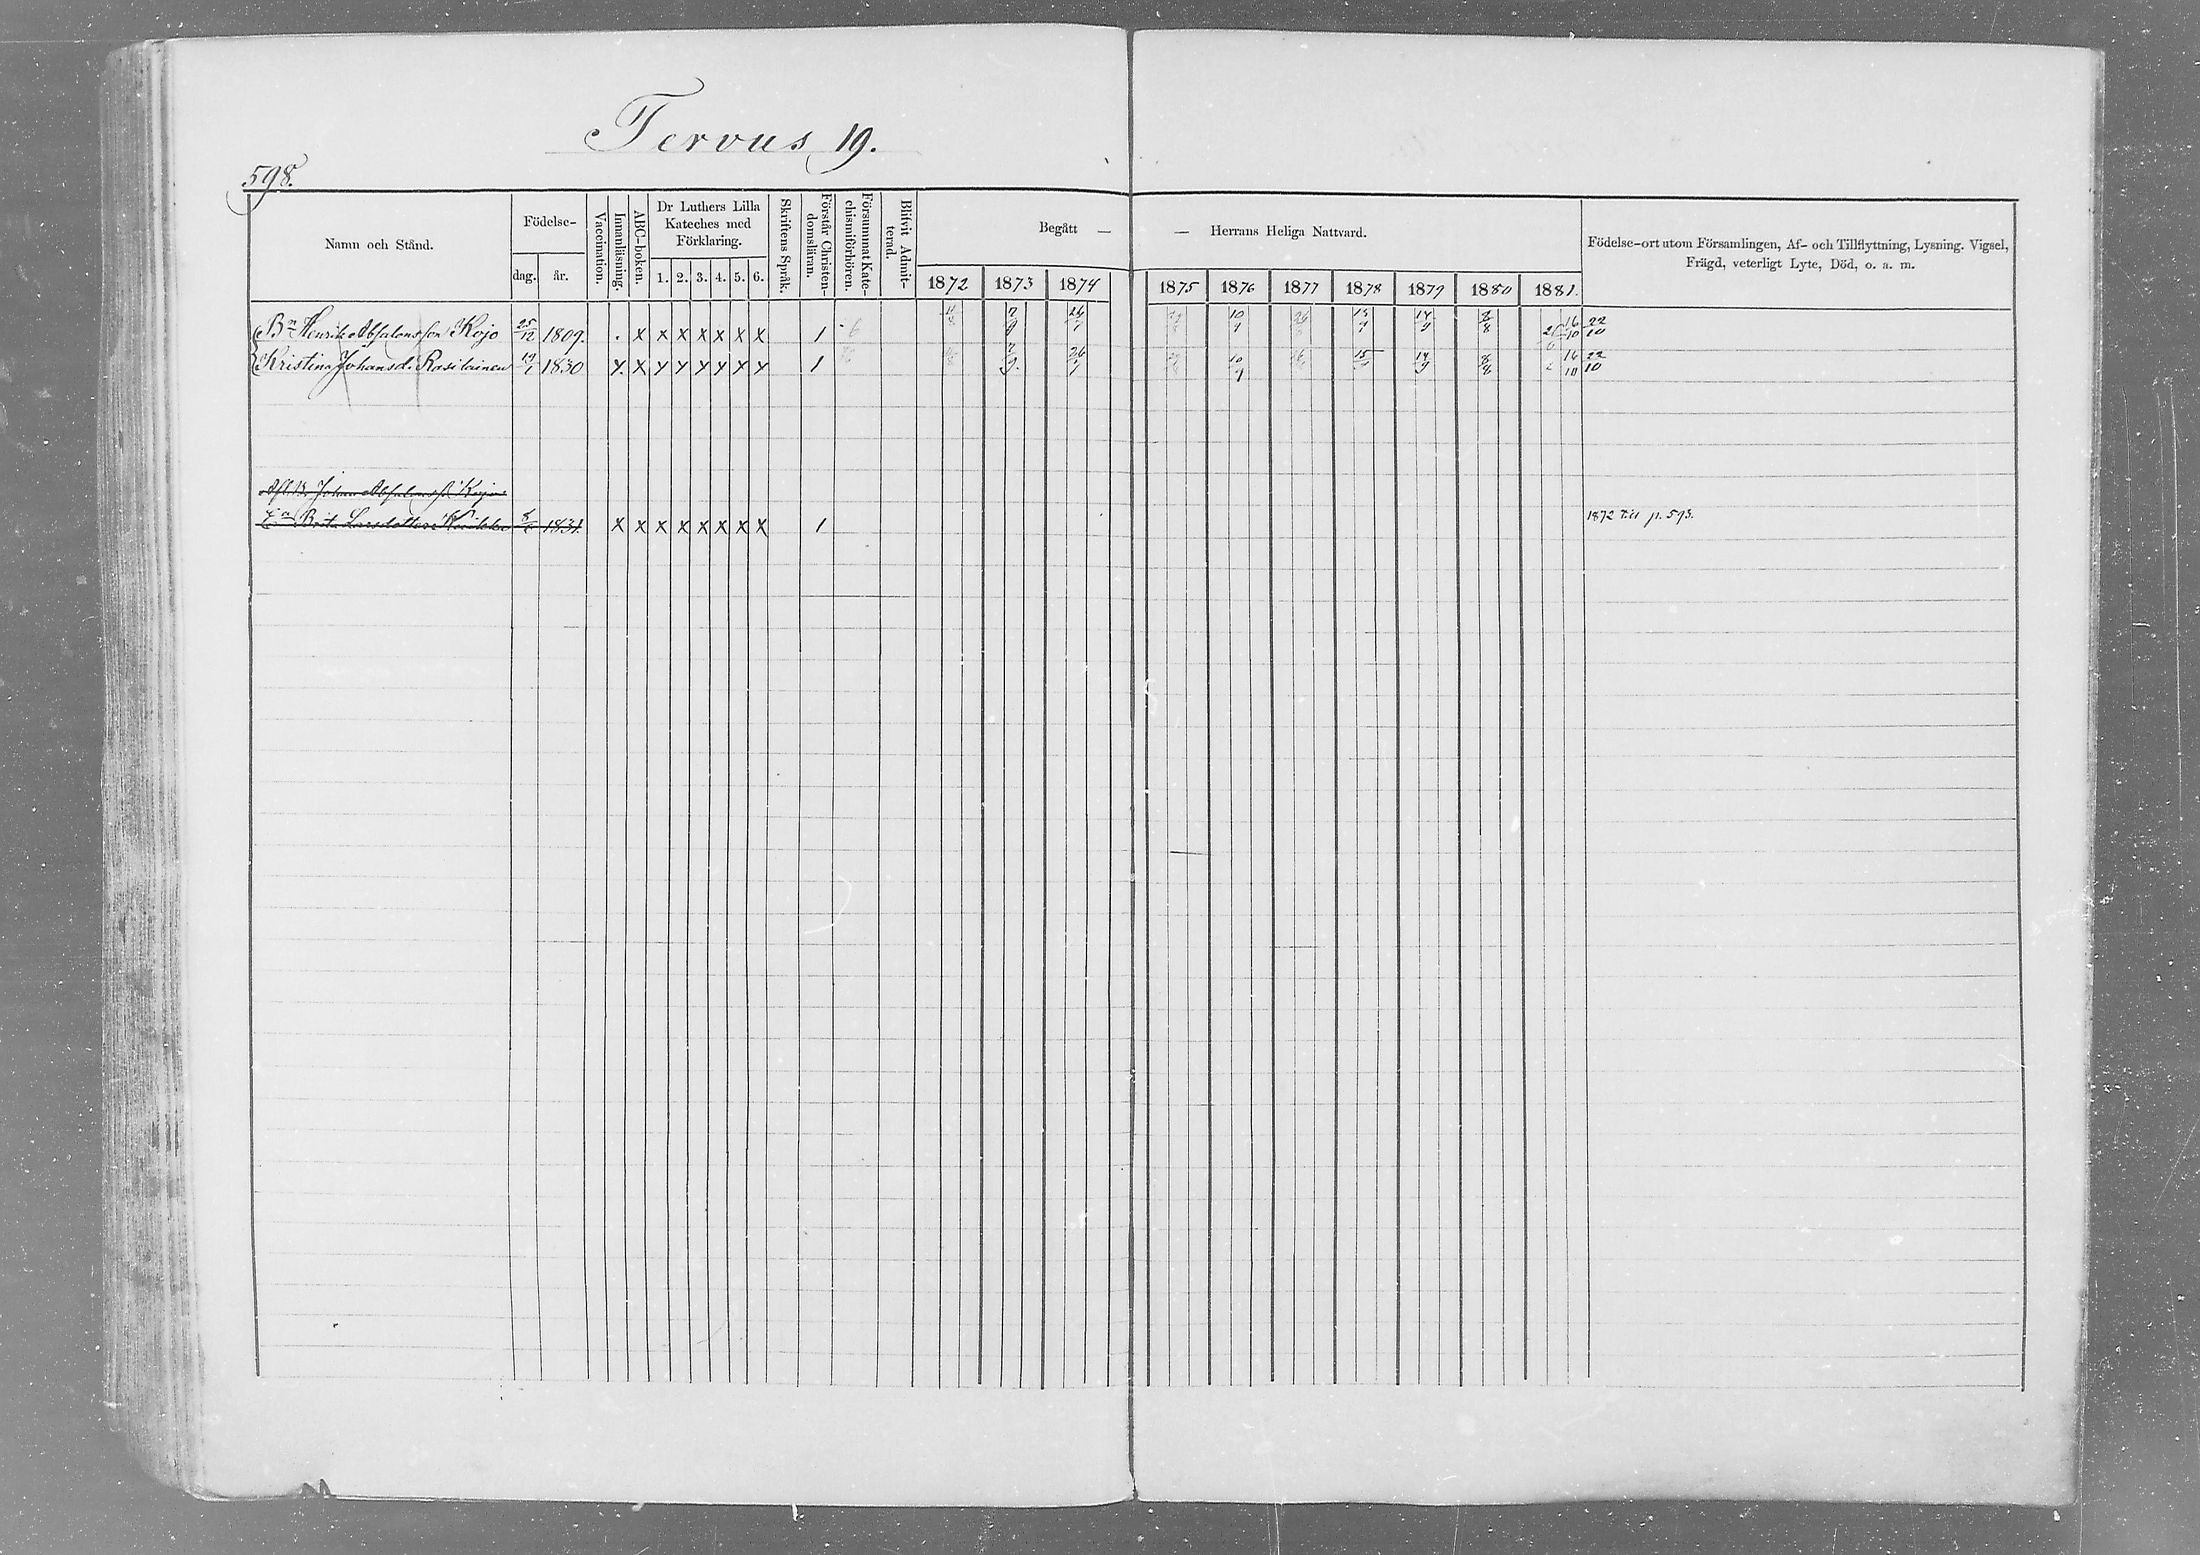 Tervus 19.
598.
Namn och Stånd.
Födelse-
dag.
år.
Vaccination.
Innanläsning.
ABC-boken.
Dr Luthers Lilla
Kateches med
Förklaring.
1. 2. 3. 4. 5. 6.
Skriftens Språk.
Förstår Christen-
domsläran.
Försummat Kate-
chismiförhören.
Blifvit Admit-
terad.
Begått — — Herrans Heliga Nattvard.
1872 1873 1874 1875 1876 1877 1878 1879 1880 1881.
Födelse-ort utom Församlingen, Af- och Tillflyttning, Lysning. Vigsel,
Frägd, veterligt Lyte, Död, o. a. m.
Bn Henrik Absalonsson Kojo 25/12 1809. . x x x x x x x 1 7/9 26/7 10/9 14/9 8/8 16/10 22/10
Kristina Johansd. Rasilainen 19/1 1830 x x x x x x x x 1 7/9. 26/7 10/9 14/9 8/8 16/10 22/10
Johan Absalonss Kojo
Brita Larsdotter 1831. x x x x x x x x 1 1872 till p. 593.